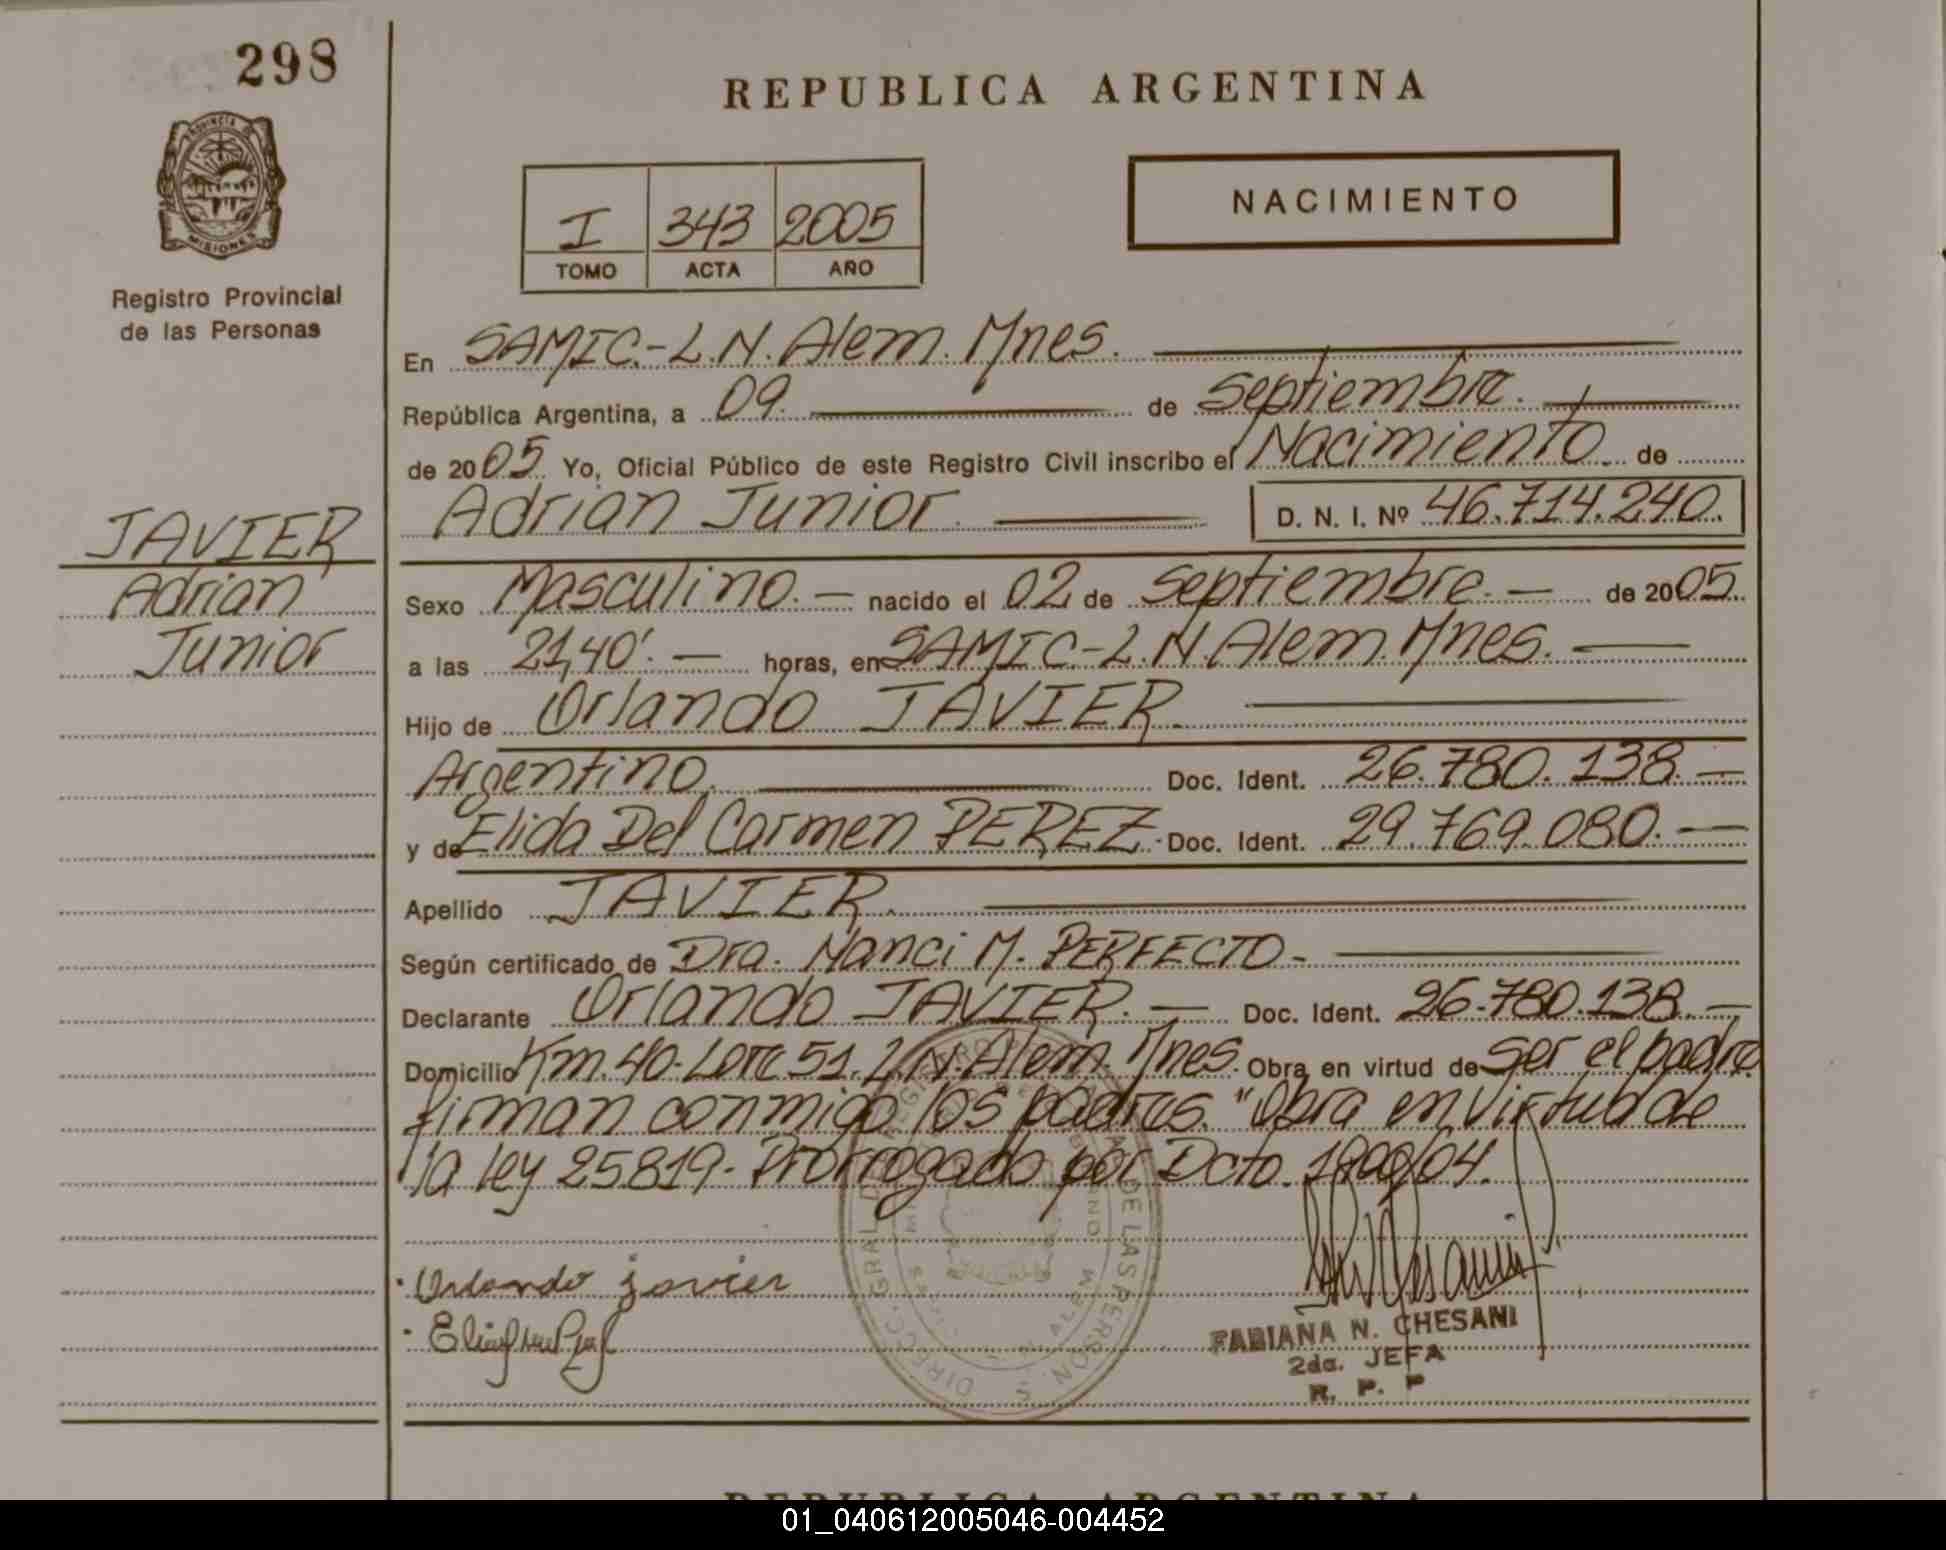 298
REPUBLICA ARGENTINA
PROVINCIA DE
MISIONES
Registro Provincial
de las Personas
I 343 2005
TOMO ACTA AÑO
NACIMIENTO
En SAMIC.-L.N.Alem.Mnes.
República Argentina, a 09. de septiembre.
de 2005. Yo, Oficial Público de este Registro Civil inscribo el Nacimiento de
Adrian Junior. D. N. I. Nº 46.714.240.
JAVIER
Adrian
Junior
Sexo Masculino.- nacido el 02 de septiembre.- de 2005.
a las 21,40'.- horas, en SAMIC-L.N.Alem.Mnes.
Hijo de Orlando JAVIER.
Argentino. Doc. Ident. 26.780.138.-
y de Elida Del Carmen PEREZ. Doc. Ident. 29.769.080.-
Apellido JAVIER.
Según certificado de Dra. Nanci M. PERFECTO-
Declarante Orlando JAVIER.- Doc. Ident. 26.780.138.-
Domicilio Km.40-Lote 51.L.N.Alem.Mnes. Obra en virtud de ser el padre
firman conmigo los padres. "Obra en virtud de
la ley 25819-Prorrogado por Dcto. 1809/04.
Orlando javier
FABIANA N. CHESANI
2da. JEFA
R. P. P
REPUBLICA ARGENTINA
01_040612005046-004452